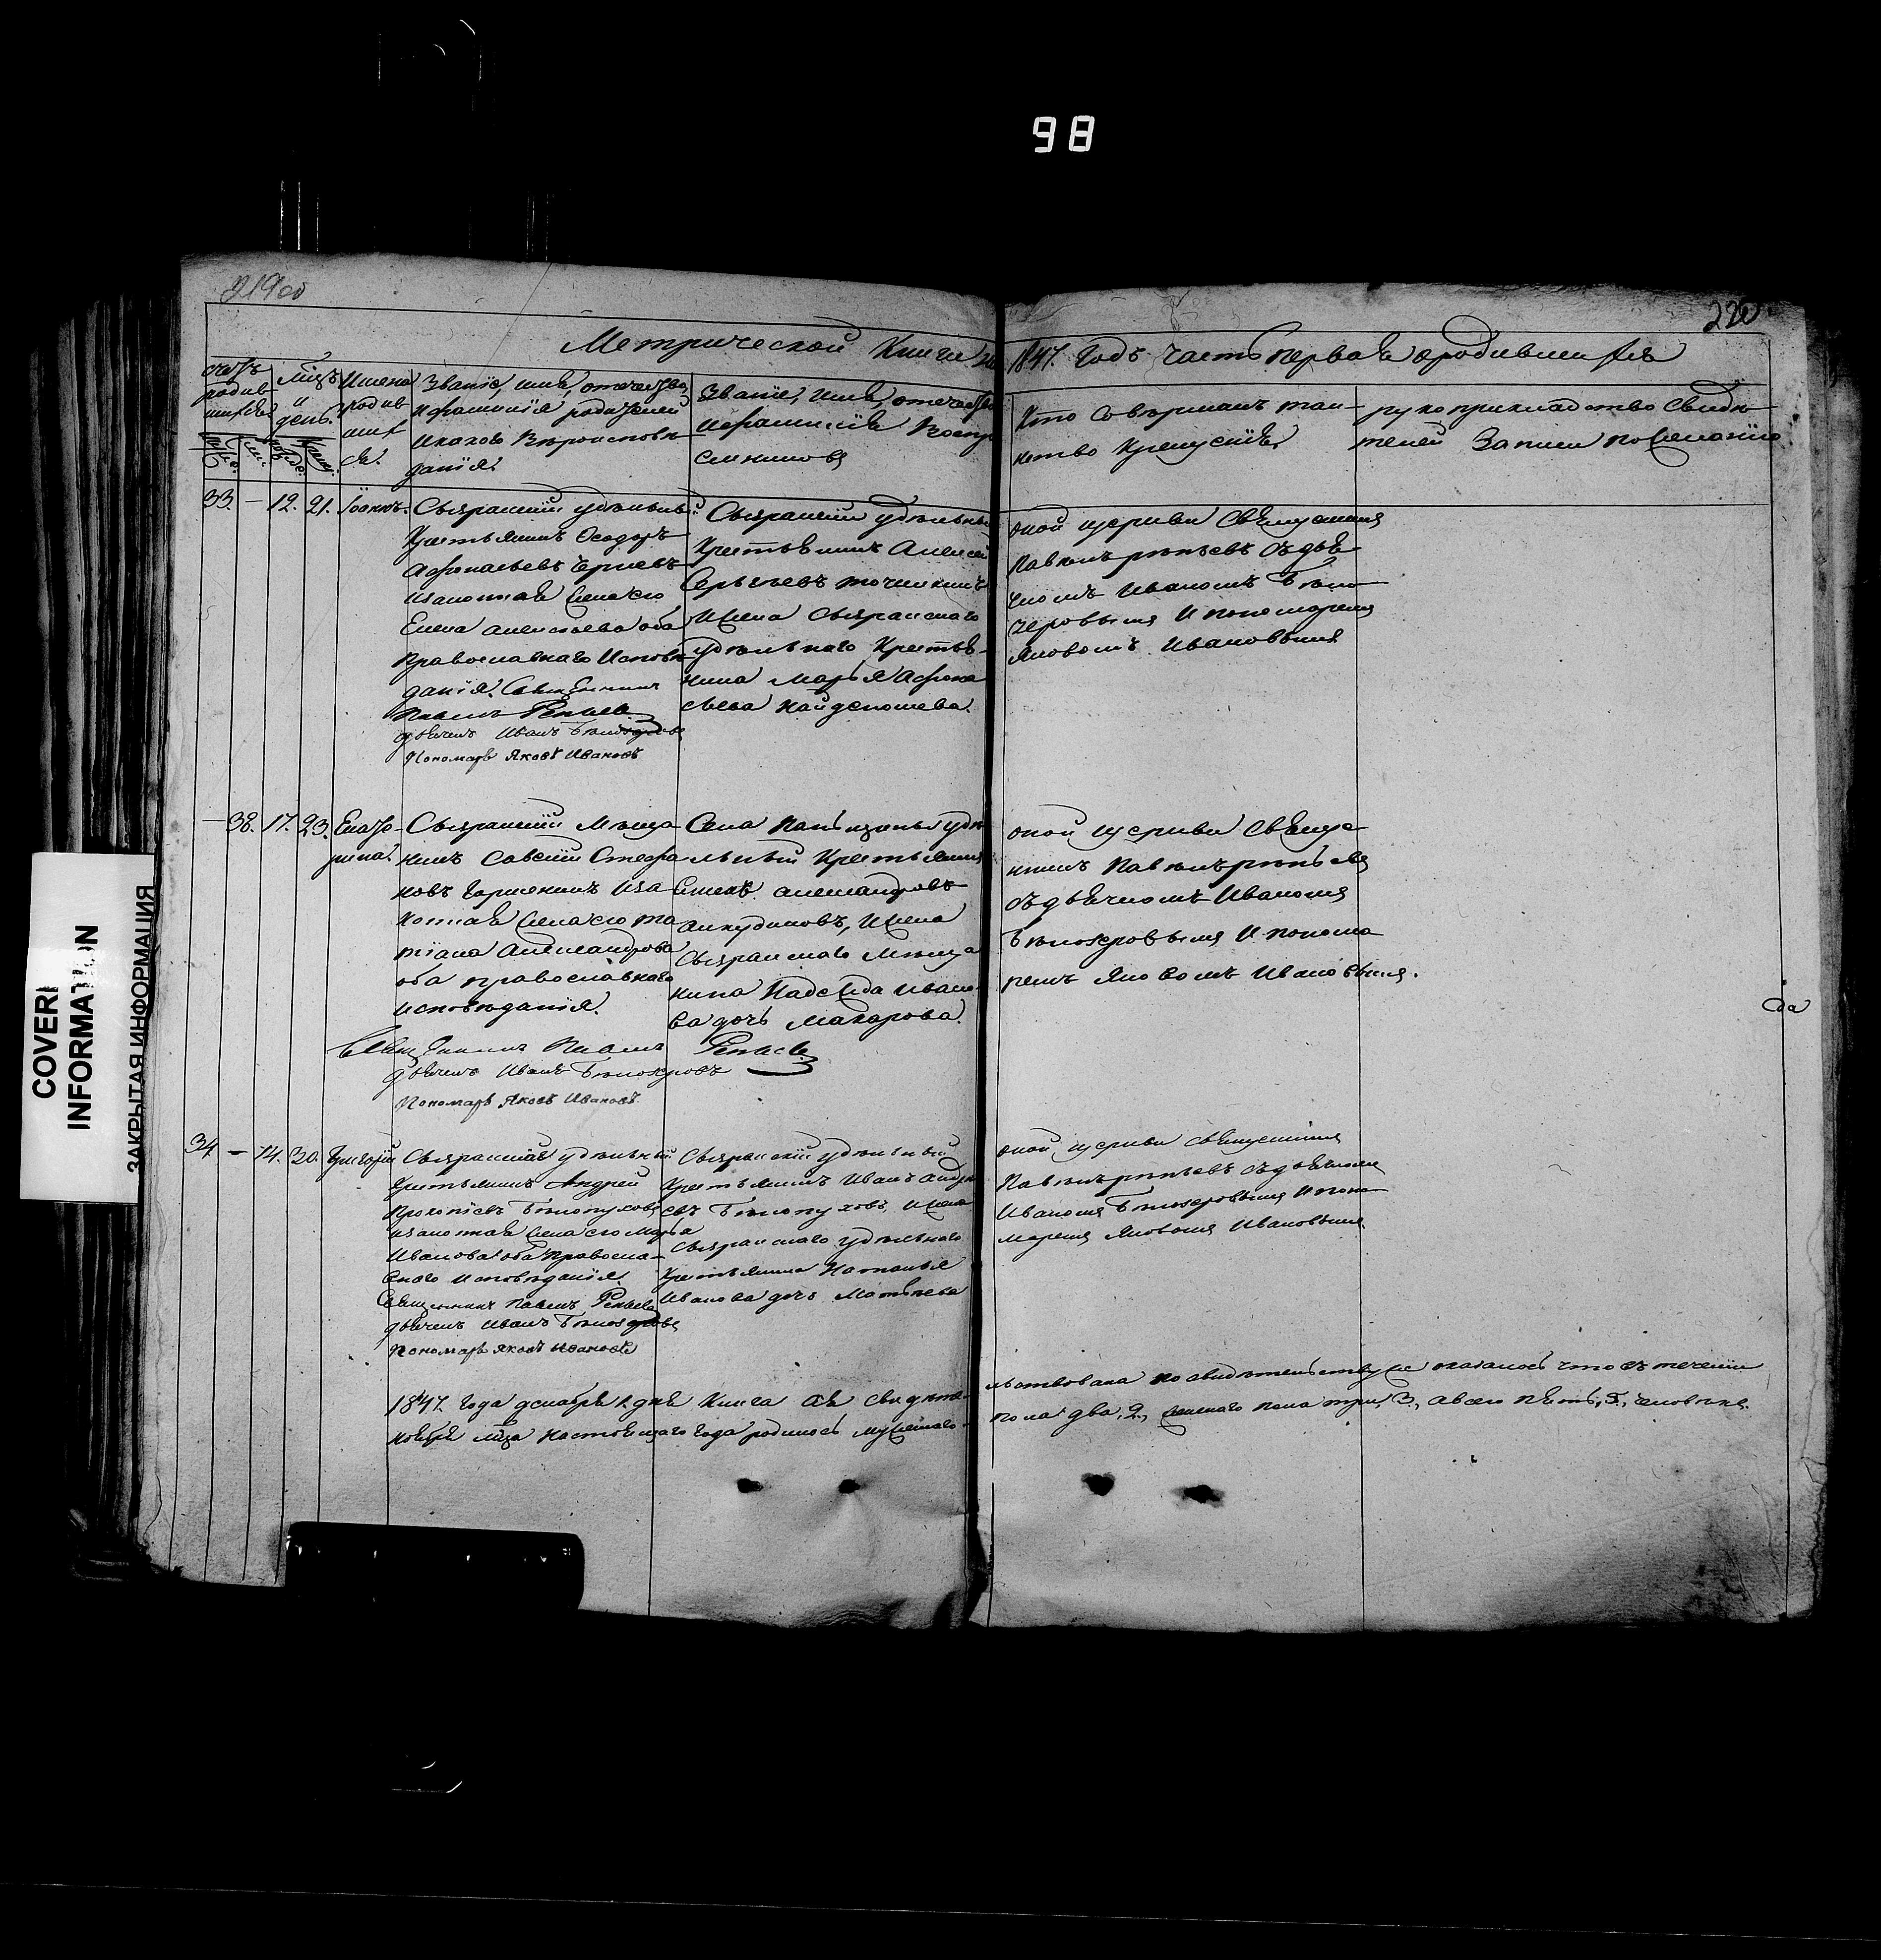 98
219об
220
Метрической Книги на 1847. Годъ часть первая о родившихся
счетъ родив шихся.
мцъ и день.
Имена родив шихся.
Званіе, имя, отечество,
и фамилія родителей
и какова вѣроисповѣ-
данія.
Званіе, имя, отечество
и фамилія Воспр
емниковъ
Кто совершалъ таи-
нство крещенія
рукоприкладство свидѣ-
телей записи по желанію
33. — 19. 21. Іоаннъ.
Сызранскій удѣльный
Крестьянинъ Феодоръ
Афонасьевъ
и законная жена его
Елена Алексѣева оба
Православнаго Исповѣ-
данія. Священникъ
Павелъ Репьевъ
дьяченъ Иванъ Бѣлозеровъ
Пономарь Яковъ Ивановъ
Сызранскій удѣльный
Крестьянинъ Алексей
Сергѣевъ
и жена Сызранскаго
удѣльнаго Крестья-
нина Марья Афона
сьева
оной церкви Священникомъ
Павломъ Репьевъ съ дья
чкомъ Иваномъ Бѣло
зеровымъ и пономаремъ
Яковомъ Ивановымъ
— 38. 17. 23. Екате-
рина.
Сызранскій Мѣща-
нинъ Савелій Стефа
новъ и за
конная жена его Та
тіана Александрова
оба православнаго
исповѣданія.
Священникъ Павелъ Репьевъ
дьяченъ Иванъ Бѣлозеровъ
Пономарь Яковъ Ивановъ
Села удѣ
льный Крестьянинъ
Александровъ
Анкудиновъ, и жена
Сызранскаго Мѣща
нина Надежда Ивано
ва дочь Макарова.
оной церкви Священ
никомъ Павломъ Репьевъ
съ дьячкомъ Иваномъ
Бѣлозеровымъ и понома
ремъ Яковомъ Ивановымъ.
да
34 — 14. 30. Григорій
Сызранскій удѣльный
Крестьянинъ Андрей
Прокопіевъ Бѣлопуховъ
и законная жена его Марья
Иванова оба правосла-
внаго исповѣданія.
Священникъ Павелъ Репьевъ
дьяченъ Иванъ Бѣлозеровъ
Пономарь Яковъ Ивановъ
Сызранскій удѣльный
Крестьянинъ Иванъ Андре
евъ Бѣлопуховъ, и жена
Сызранскаго удѣльнаго
Крестьянина Наталья
Иванова дочь Матвѣева
оной церкви священникомъ
Павломъ Репьевъ съ дьячкомъ
Иваномъ Бѣлозеровымъ и поно
маремъ Яковомъ Ивановымъ
1847. Года декабря 1 дня Книга сія свидѣте- льствована по свидѣтельству же оказалось что въ теченіи
ноября мца настоящаго года родилось мужескаго пола два, 2, женскаго пола три, 3, а всего пять, 5, человѣкъ.
COVERI
INFORMATION
ЗАКРЫТАЯ ИНФОРМАЦИЯ